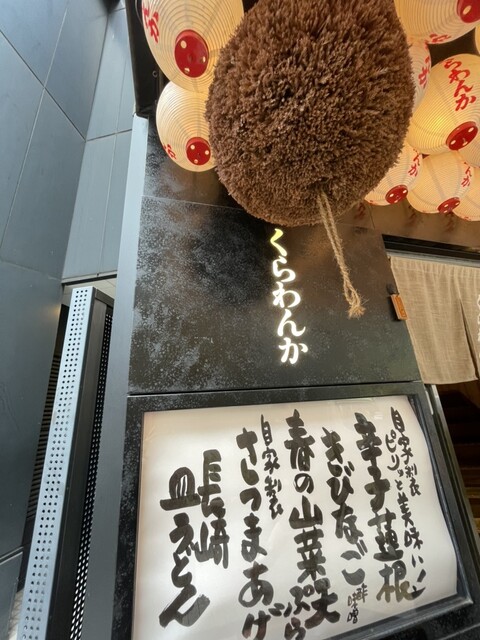 くらわんか
らわんか
自家製
ピリッと美味い！
辛子蓮根
きびなご酢味噌
春の山菜天ぷら
自家製
さつまあげ
長崎
皿うどん